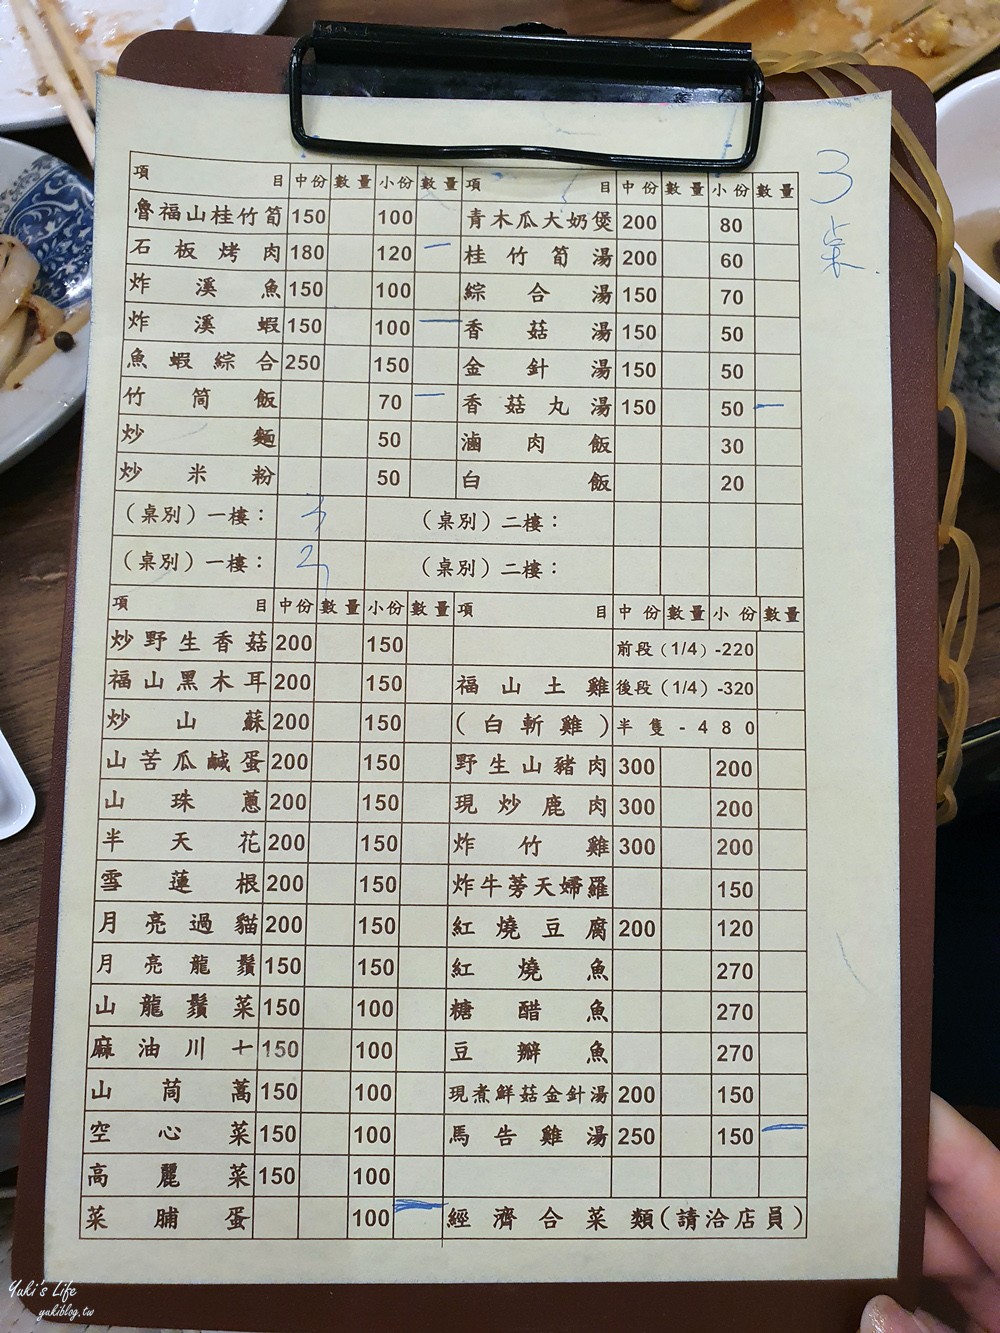 3桌
項目 中份 數量 小份 數量 項目 中份 數量 小份 數量
魯福山桂竹筍 150 100 青木瓜大奶煲 200 80
石板烤肉 180 120 一 桂竹筍湯 200 60
炸溪魚 150 100 綜合湯 150 70
炸溪蝦 150 100 一 香菇湯 150 50
魚蝦綜合 250 150 金針湯 150 50
竹筒飯 70 一 香菇丸湯 150 50 一
炒麵 50 滷肉飯 30
炒米粉 50 白飯 20
（桌別）一樓： 3 （桌別）二樓：
（桌別）一樓： 2 （桌別）二樓：
項目 中份 數量 小份 數量 項目 中份 數量 小份 數量
炒野生香菇 200 150 前段（1/4）-220
福山黑木耳 200 150 福山土雞 後段（1/4）-320
炒山蘇 200 150 （白斬雞） 半隻-480
山苦瓜鹹蛋 200 150 野生山豬肉 300 200
山珠蔥 200 150 現炒鹿肉 300 200
半天花 200 150 炸竹雞 300 200
雪蓮根 200 150 炸牛蒡天婦羅 150
月亮過貓 200 150 紅燒豆腐 200 120
月亮龍鬚 150 150 紅燒魚 270
山龍鬚菜 150 100 糖醋魚 270
麻油川七 150 100 豆瓣魚 270
山茼蒿 150 100 現煮鮮菇金針湯 200 150
空心菜 150 100 馬告雞湯 250 150 一
高麗菜 150 100
菜脯蛋 100 一 經濟合菜類（請洽店員）
Yuki's Life
yukiblog.tw